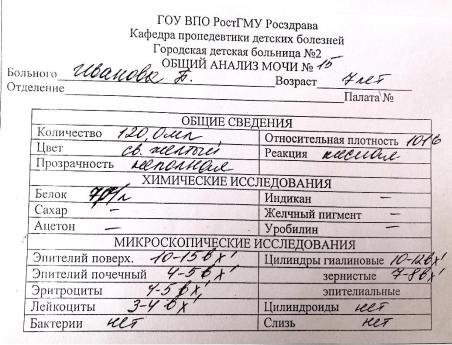 ГОУ ВПО РостГМУ Росздрава
Кафедра пропедевтики детских болезней
Городская детская больница №2
ОБЩИЙ АНАЛИЗ МОЧИ № 15
Больного Иванова Б. Возраст 7 лет
Отделение Палата №
ОБЩИЕ СВЕДЕНИЯ
Количество 120,0 мл Относительная плотность 1016
Цвет св. желтый Реакция кислая
Прозрачность неполная
ХИМИЧЕСКИЕ ИССЛЕДОВАНИЯ
Белок г/л Индикан –
Сахар – Желчный пигмент –
Ацетон – Уробилин –
МИКРОСКОПИЧЕСКИЕ ИССЛЕДОВАНИЯ
Эпителий поверх. 10-15 в х' Цилиндры гиалиновые 10-12 в х'
Эпителий почечный 4-5 в х' зернистые 7-8 в х'
Эритроциты 4-5 в х' эпителиальные
Лейкоциты 3-4 в х' Цилиндроиды нет
Бактерии нет Слизь нет